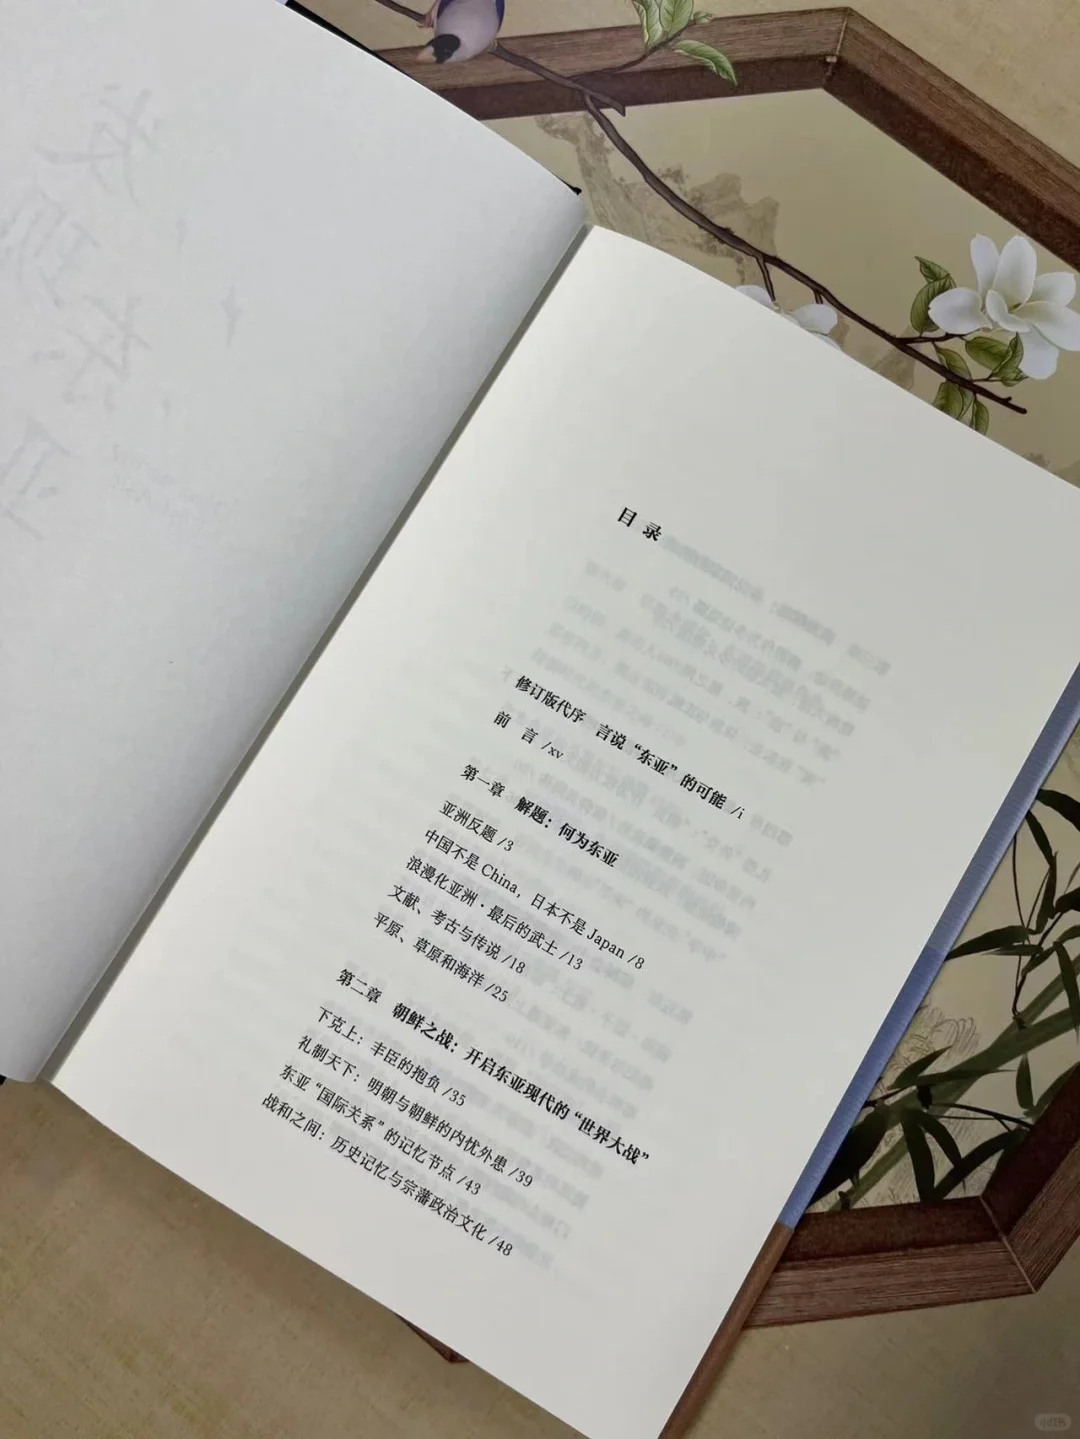 目录
修订版代序 言说“东亚”的可能 /i
前 言 /xv
第一章 解题：何为东亚
亚洲反题 /3
中国不是 China，日本不是 Japan /8
浪漫化亚洲·最后的武士 /13
文献、考古与传说 /18
平原、草原和海洋 /25
第二章 朝鲜之战：开启东亚现代的“世界大战”
下克上：丰臣的抱负 /35
礼制天下：明朝与朝鲜的内忧外患 /39
东亚“国际关系”的记忆节点 /43
战和之间：历史记忆与宗藩政治文化 /48